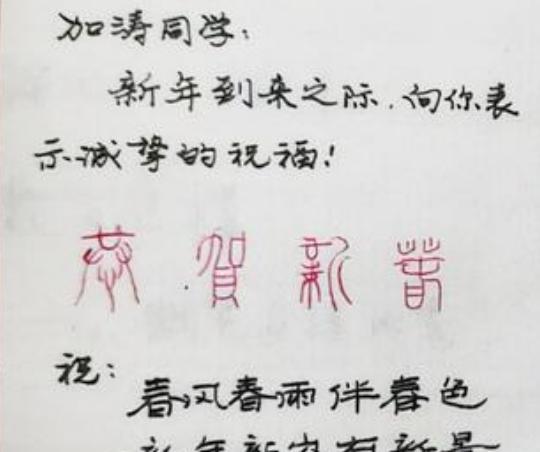 加涛同学：
新年到来之际，向你表
示诚挚的祝福！
恭贺新春
祝：
春风春雨伴春色
新年新岁有新景